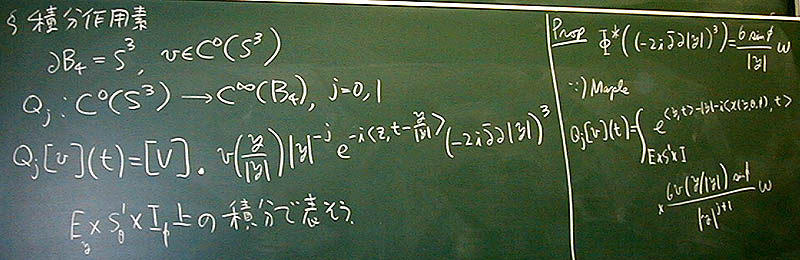 § 積分作用素
∂B₄ = S³, v∈C⁰(S³)
Qⱼ : C⁰(S³) → C^∞(B₄), j=0,1
Qⱼ[v](t) = [V]. v(z/|z|)|z|^{-j} e^{-i<z,t-z/|z|>} (-2i ∂̄∂|z|)³
E_z × S'_θ × I_φ 上の積分で表そう.
Prop Φ*((-2i ∂̄∂|z|)³) = 6 sin φ/|z| ω
∵) Maple
Qⱼ[v](t) = ∫_{E×S'×I} e^{<z,t>-|z|-i<x(z,θ,φ),t>}
× 6v(z/|z|) sin φ/|z|^{j+1} ω